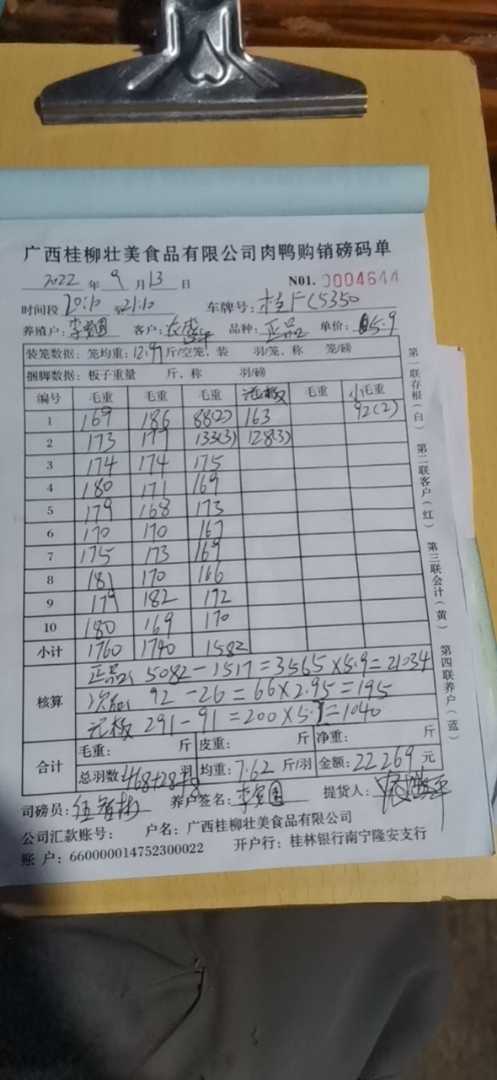 广西桂柳壮美食品有限公司肉鸭购销磅码单
2022 年 9 月 13 日 N01. 0004644
时间段 20:10 至21:10 车牌号:
养殖户: 客户: 品种: 正品 单价: 5.9
装笼数据: 笼均重: 12.97 斤/空笼, 装 羽/笼, 称 笼/磅
捆脚数据: 板子重量 斤, 称 羽/磅
编号 毛重 毛重 毛重 毛重 毛重
1 169 186 88(2) 163 92(2)
2 173 177 133(3) 128(3)
3 174 174 175
4 180 171 169
5 179 168 173
6 170 170 167
7 175 173 169
8 181 170 166
9 179 182 172
10 180 169 170
小计 1760 1740 1582
核算 正品: 5082-1517=3565×5.9=21034
次品: 92-26=66×2.95=195
291-91=200×5. =1040
合计 毛重: 斤 皮重: 斤 净重: 斤
总羽数: 羽 均重: 7.62 斤/羽 金额: 22269 元
司磅员: 养户签名: 提货人:
公司汇款账号: 户名: 广西桂柳壮美食品有限公司
账 户: 660000014752300022 开户行: 桂林银行南宁隆安支行
第一联存根(白) 第二联客户(红) 第三联会计(黄) 第四联养户(蓝)